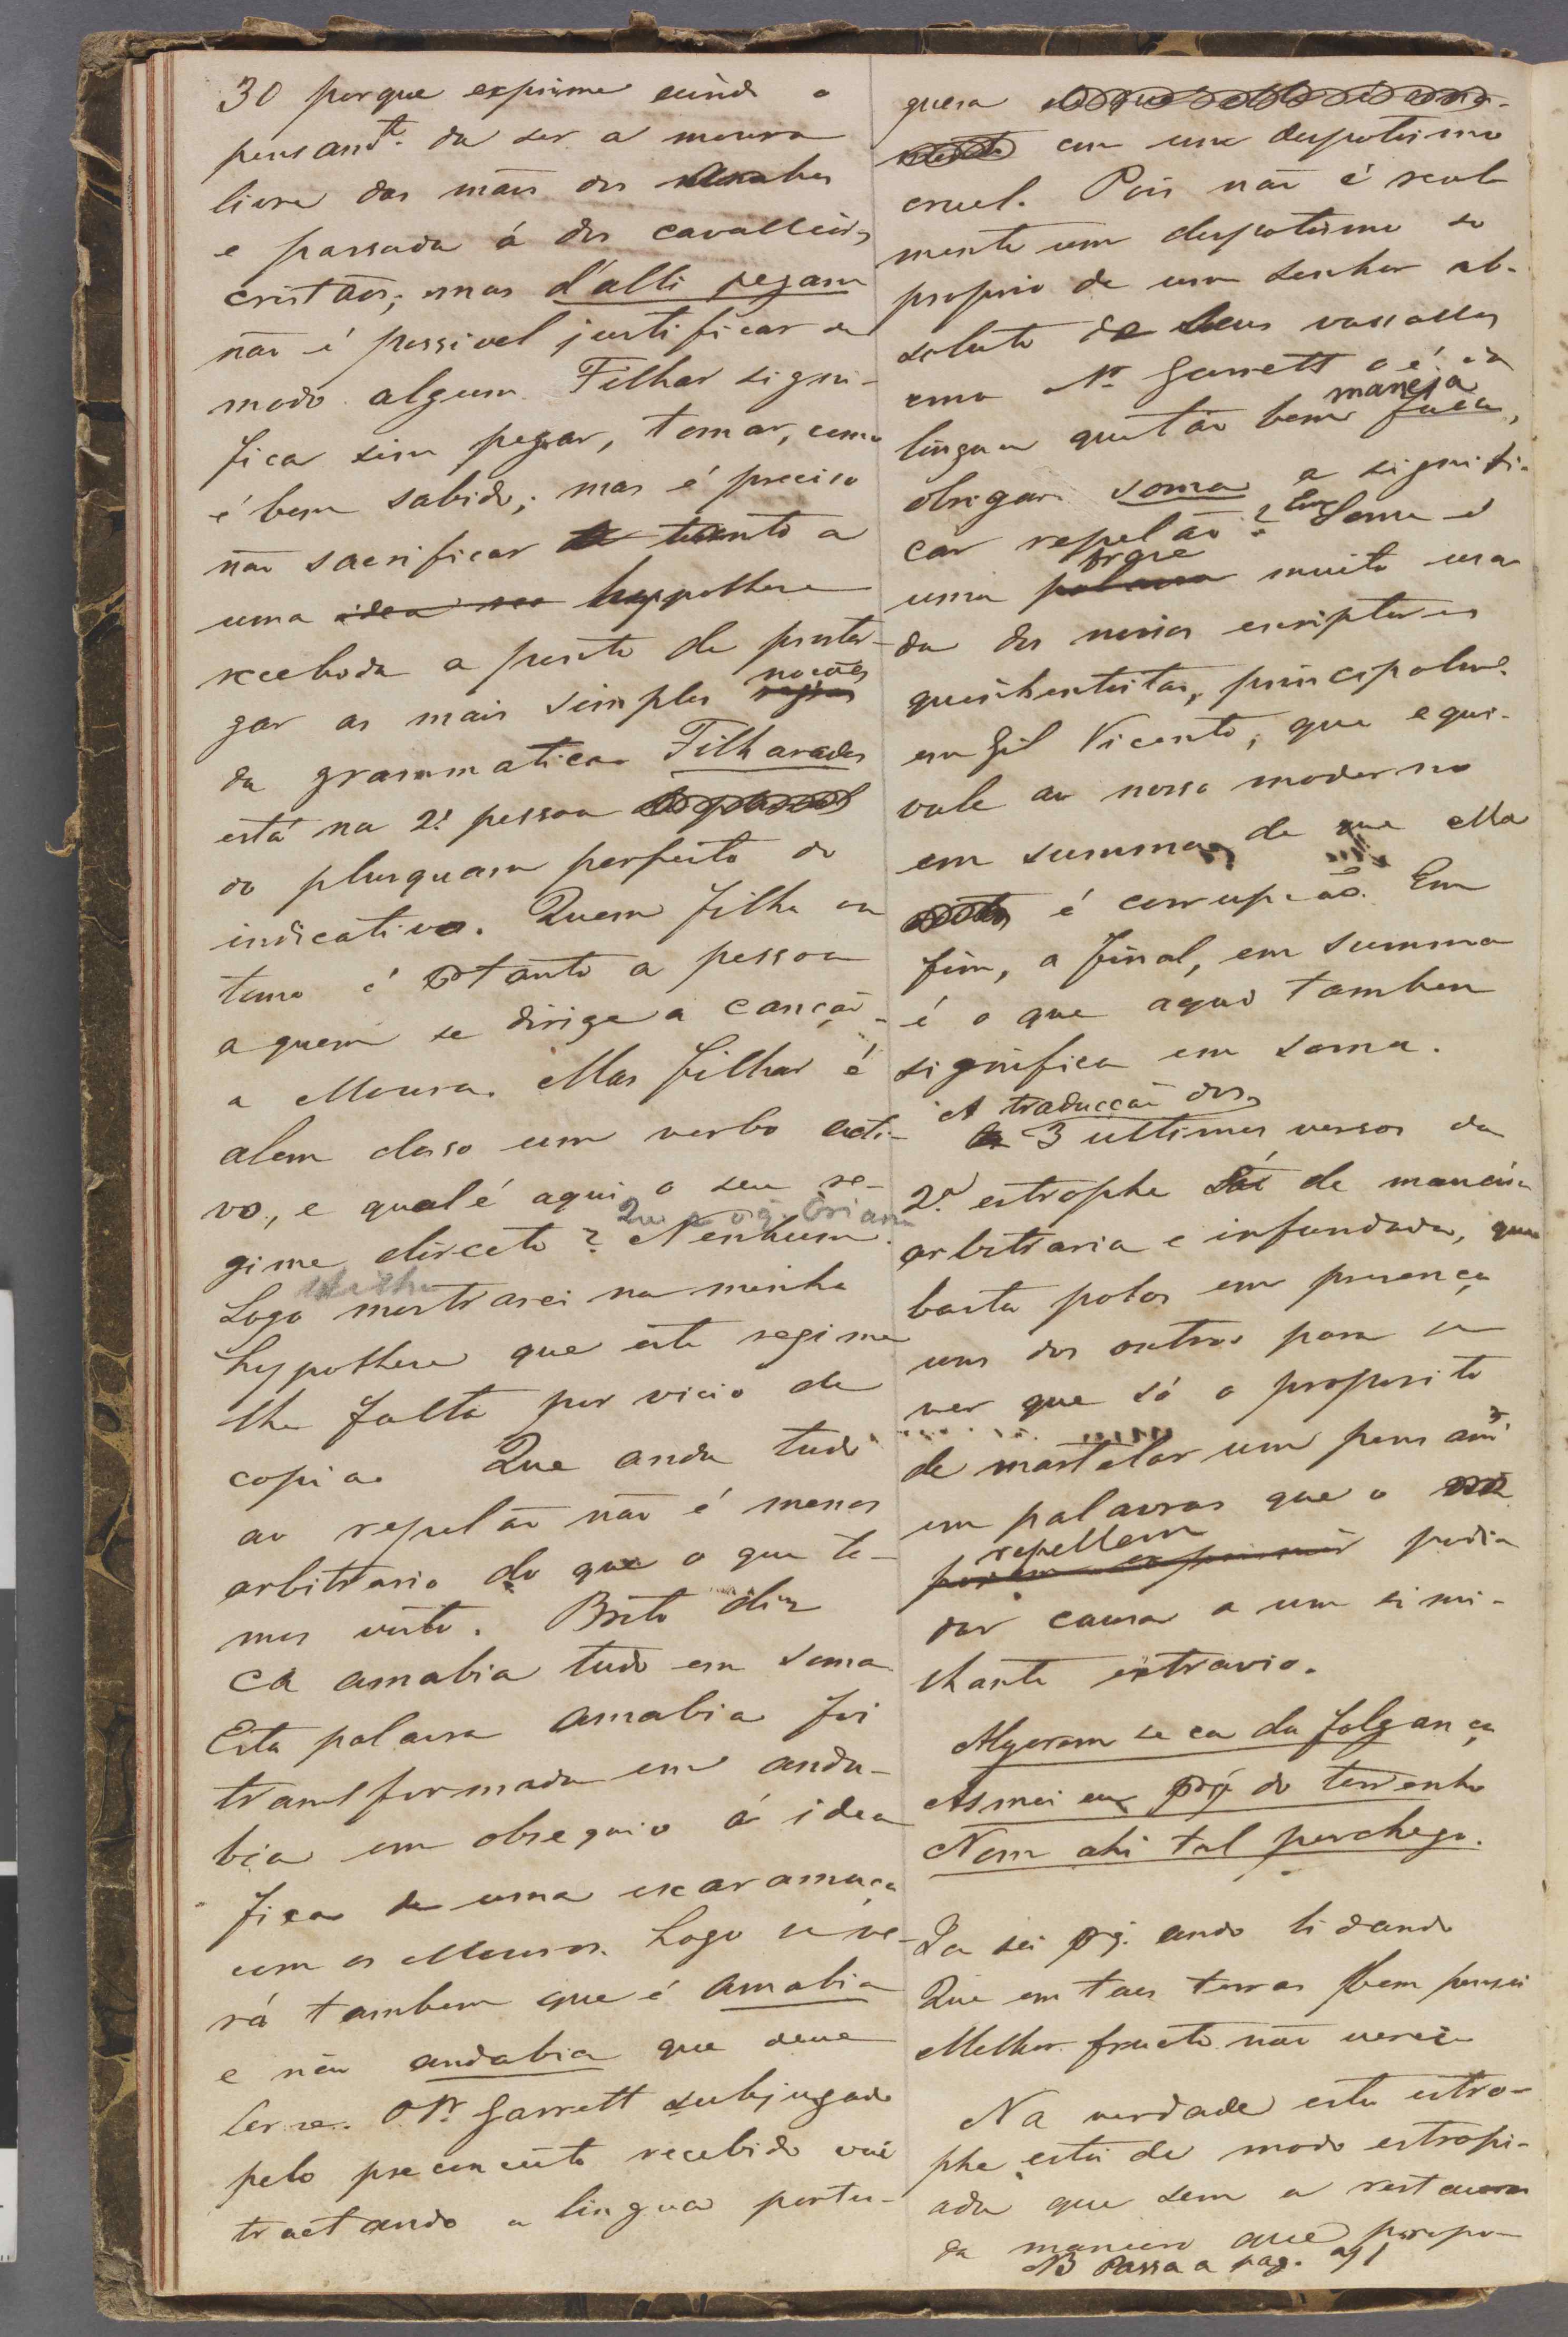 30 porque exprime ainda o
pensam.to de ser a moura
livre das mãos dos Arabes
e passada á dos cavalleiros
cristãos; mas d'alli pegam
não é possivel justificar de
modo algum. Filhar signi-
fica sim pegar, tomar, como
é bem sabido; mas é preciso
não sacrificar tanto a
uma idea hyppothese
recebida a ponto de poster-
gar as mais simples noções
da grammatica. Filharades
está na 2.ª pessoa
do plusquam perfeito do
indicativo. Quem filha ou
toma é portanto a pessoa
a quem se dirige a canção -
a Moura. Mas filhar é
alem disso um verbo acti-
vo, e qual é aqui o seu re-
gime directo? Nenhum.
Logo mostrarei na minha
hypothese que este regime
lhe falta por vicio de
copia. Que anda tudo
ao repelão não é menos
arbitrario do que o que te-
mos visto. Brito diz
Ca amabia tudo em soma
Esta palavra amabia foi
transformada em anda-
bia em obsequio á idea
fixa de uma escaramuça
com os Mouros. Logo se ve-
rá tambem que é amabia
e não andabia que deve
ler-se. O Sr. Garrett subjugado
pelo preconceito recebido vai
tractando a lingua portu-
guesa
com um despotismo
cruel. Pois não é real
mente um despotismo so
proprio de um senhor ab-
soluto de seus vassallos
como o Sr. Garrett o é da
lingua que tão bem maneja,
obrigar soma a signifi-
car repelão? Em Soma é
uma phrase muito usa-
da dos nossos escriptores
quinhentistas, principalm.e
em Gil Vicente, que equi-
vale ao nosso moderno
em summa, de que ella
é corrupção. Em
fim, a final, em summa
é o que aqui tambem
significa em soma.
A traducção dos
3 ultimos versos da
2.ª estrophe é de maneira
arbitraria e infundada, que
basta polos em presença
uns dos outros para se
ver que só o proposito
de martelar um pensam.to
em palavras que o
repellem podia
dar causa a um simi-
lhante extravio.
Algorem se ca da folgança
Asmei eu porq. do terrenho
Nom ahi tal perchego.
La sei porq. ando lidando
Que em taes terras bem pensei
Melhor fructo não verei
Na verdade esta estro-
phe está de modo estropi-
ada que sem a restaurar
da maneira que propo-
NB Passa a pag. 291